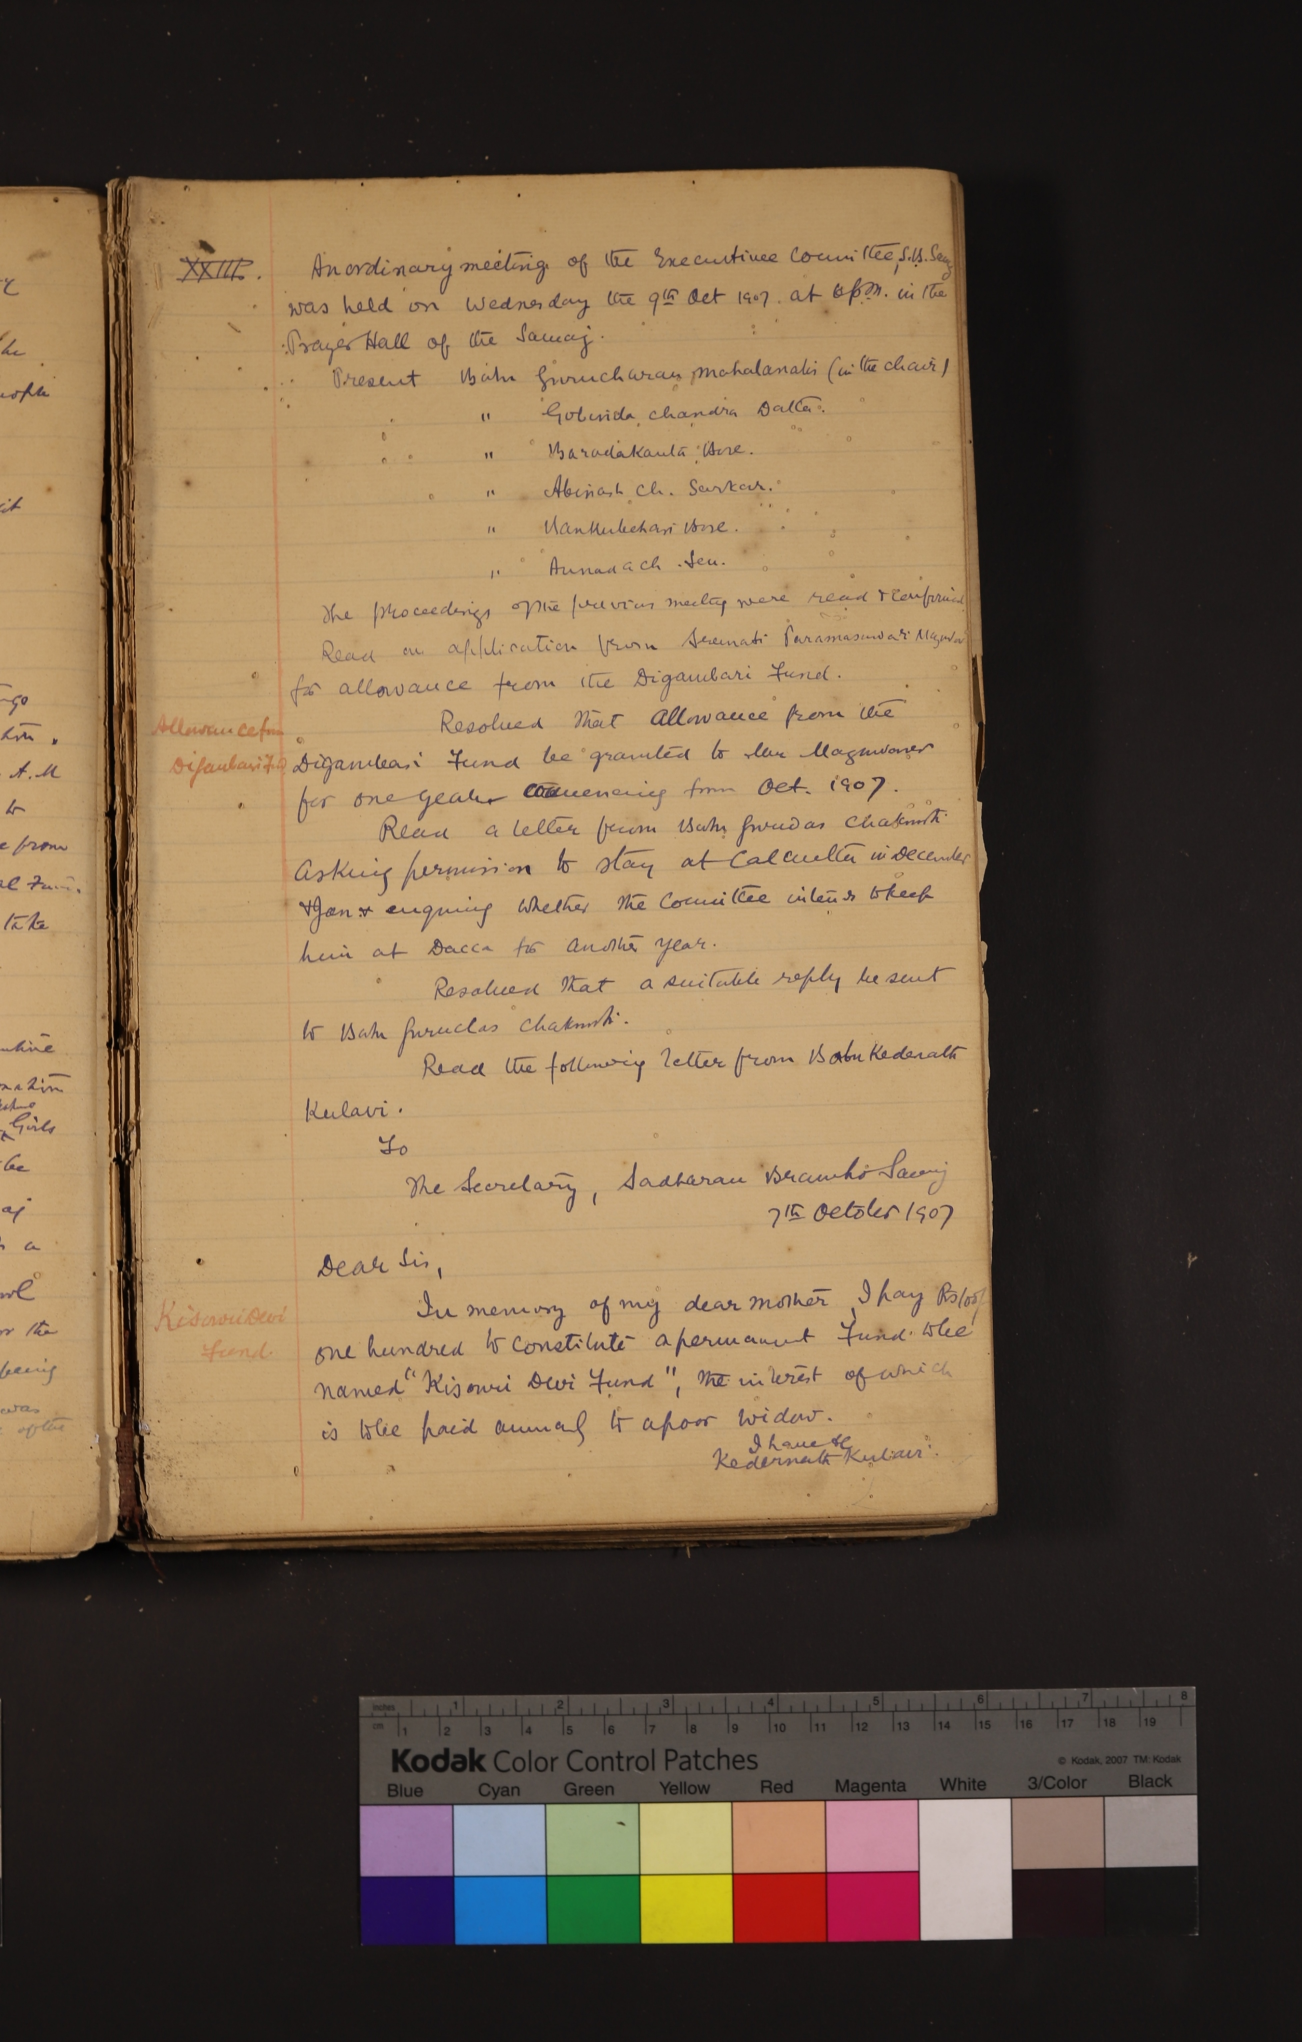 XXIII.
An ordinary meeting of the Executive Committee, S.B. Samaj
was held on Wednesday the 9th Oct 1907. at 6 P.M. in the
Prayer Hall of the Samaj.
Present Babu Gurucharan Mahalanabis (in the chair)
" Gobinda Chandra Datta.
" Baradakanta Bose.
" Abinash Ch. Sarkar.
" Bankubehari Bose.
" Annada Ch. Sen.
The proceedings of the previous meeting were read & confirmed
Read an application from Sremati
for allowance from the Digambari Fund.
Allowance from
Digambari Fund
Resolved that allowance from the
Digambari Fund be granted to
for one year commencing from Oct. 1907.
Read a letter from Babu Gurudas Chakravarti
asking permission to stay at Calcutta in December
& Jan & enquiring whether the Committee intends to keep
him at Dacca for another year.
Resolved that a suitable reply be sent
to Babu Gurudas Chakravarti.
Read the following letter from Babu Kedernath
Kulavi.
To
The Secretary, Sadharan Bramho Samaj
7th October 1907
Dear Sir,
Kisowri Devi
Fund.
In memory of my dear mother I pay Rs 100/
one hundred to constitute a permanent Fund to be
named "Kisowri Devi Fund", the interest of which
is to be paid annualy to a poor widow.
I have &c
Kedernath Kulavi.
inches 1 2 3 4 5 6 7 8
cm 1 2 3 4 5 6 7 8 9 10 11 12 13 14 15 16 17 18 19
Kodak Color Control Patches
© Kodak, 2007 TM: Kodak
Blue Cyan Green Yellow Red Magenta White 3/Color Black